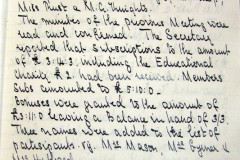 Miss Hurst & M.C. Knights.
The minutes of the previous Meeting were
read and confirmed. The Secretary
reported that subscriptions to the amount
of £3:4:3. including the Educational
£1. had been received. Members
subs amounted to £5:10:0.
Bonuses were granted to the amount of
£3:11:0 leaving a Balance in hand of 3/3.
Three names were added to the list of
participants. Mrs Mason, Mrs